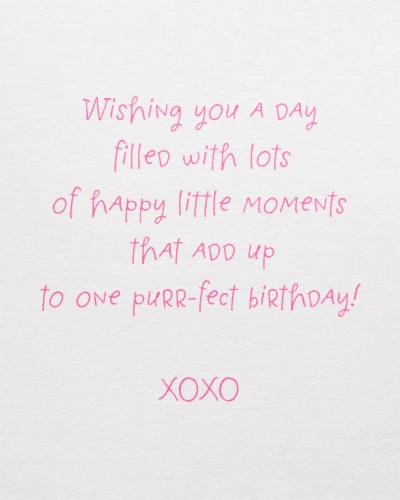 Wishing you A DAy
filleD with lots
of hAppy little MOMeNts
thAt ADD up
to ONe puRR-fect biRthDAy!
XOXO